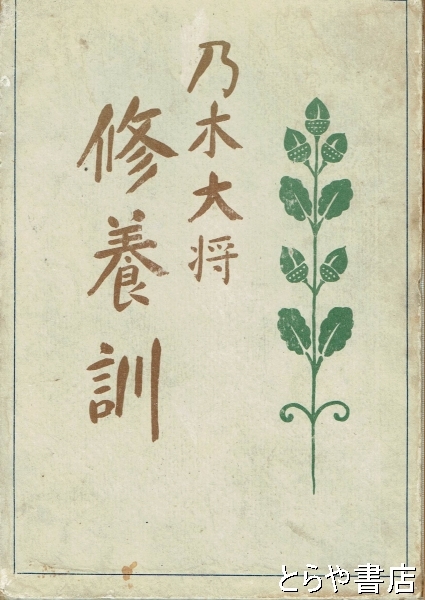 乃木大将
修養訓
とらや書店